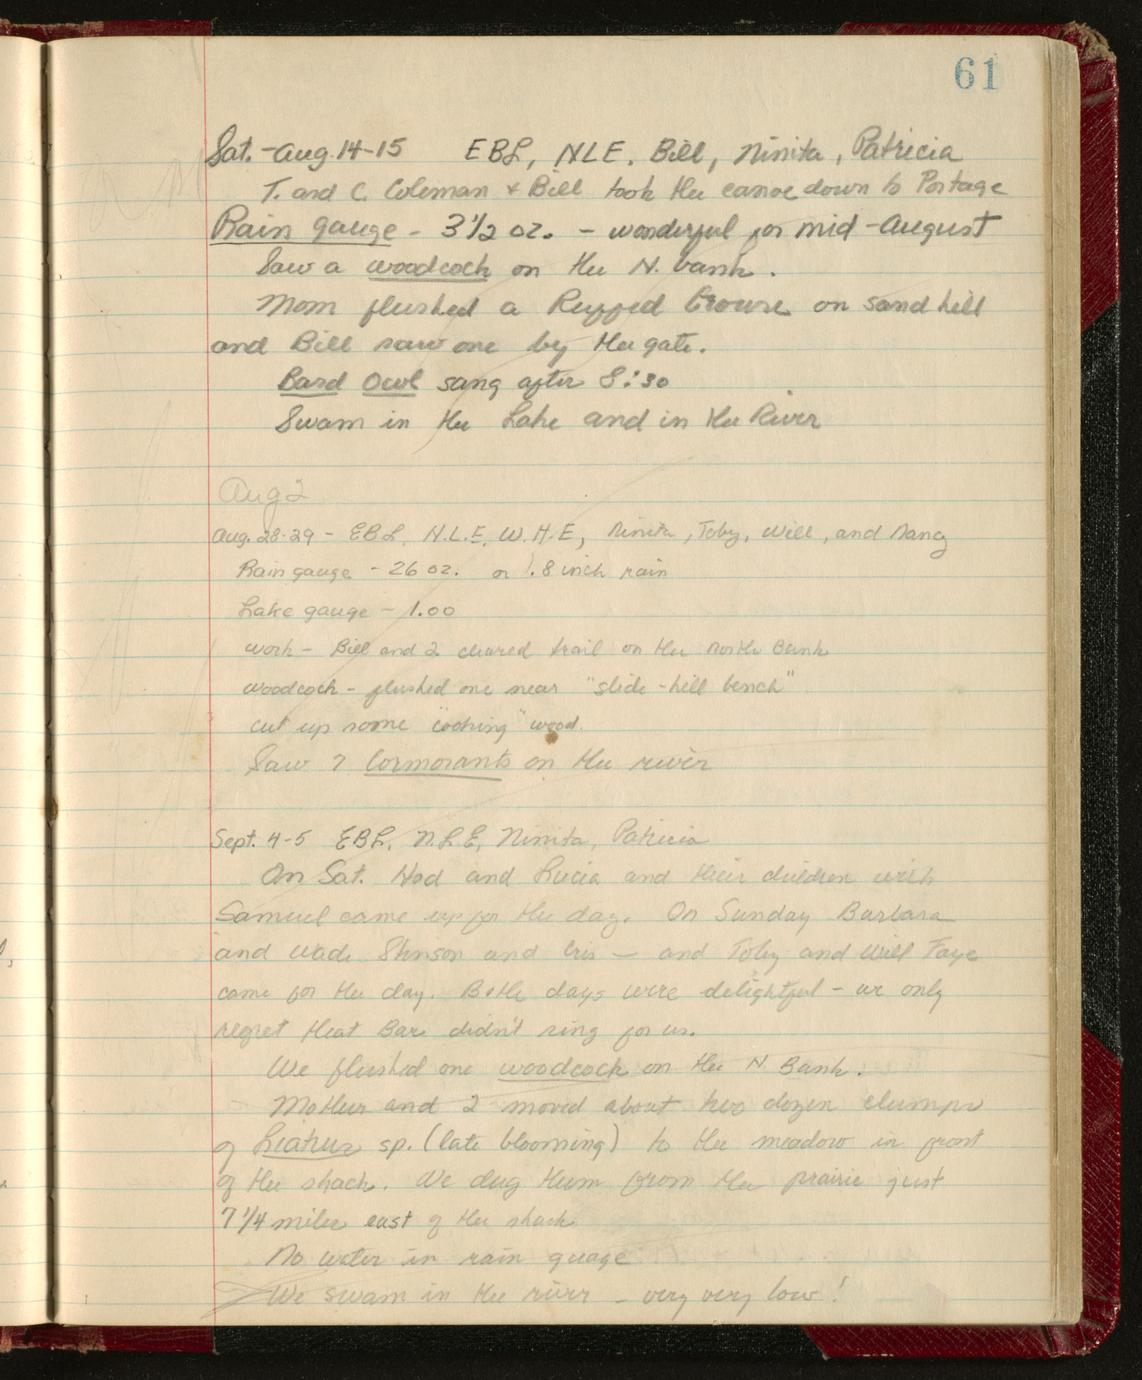 61
Sat. - Aug. 14-15 EBL, NLE, Bill, Ninita, Patricia
T. and C. Coleman + Bill took the canoe down to Portage
Rain gauge - 3 1/2 oz. - wonderful for mid-August
Saw a woodcock on the N. bank.
Mom flushed a Ruffed Grouse on sand hill
and Bill saw one by the gate.
Bard Owl sang after 8:30
Swam in the Lake and in the River
Aug 2
Aug. 28-29 - EBL, N.L.E, W.H.E, Ninita, Toby, Will, and Nancy
Rain gauge - 26 oz. or 1.8 inch rain
Lake gauge - 1.00
work - Bill and I cleared trail on the North Bank
woodcock - flushed one near "slide-hill bench"
cut up some "cooking" wood.
Saw 7 Cormorants on the river
Sept. 4-5 EBL, N.L.E, Ninita, Patricia
On Sat. Hod and Lucia and their children with
Samuel came up for the day. On Sunday Barbara
and Wade and Iris - and Toby and Will Faye
came for the day. Both days were delightful - we only
regret that Bar didn't sing for us.
We flushed one woodcock on the N. Bank.
Mother and I moved about two dozen clumps
of Liatris sp. (late blooming) to the meadow in front
of the shack. We dug them from the prairie just
7 1/4 miles east of the shack
No water in rain guage
We swam in the river - very very low!